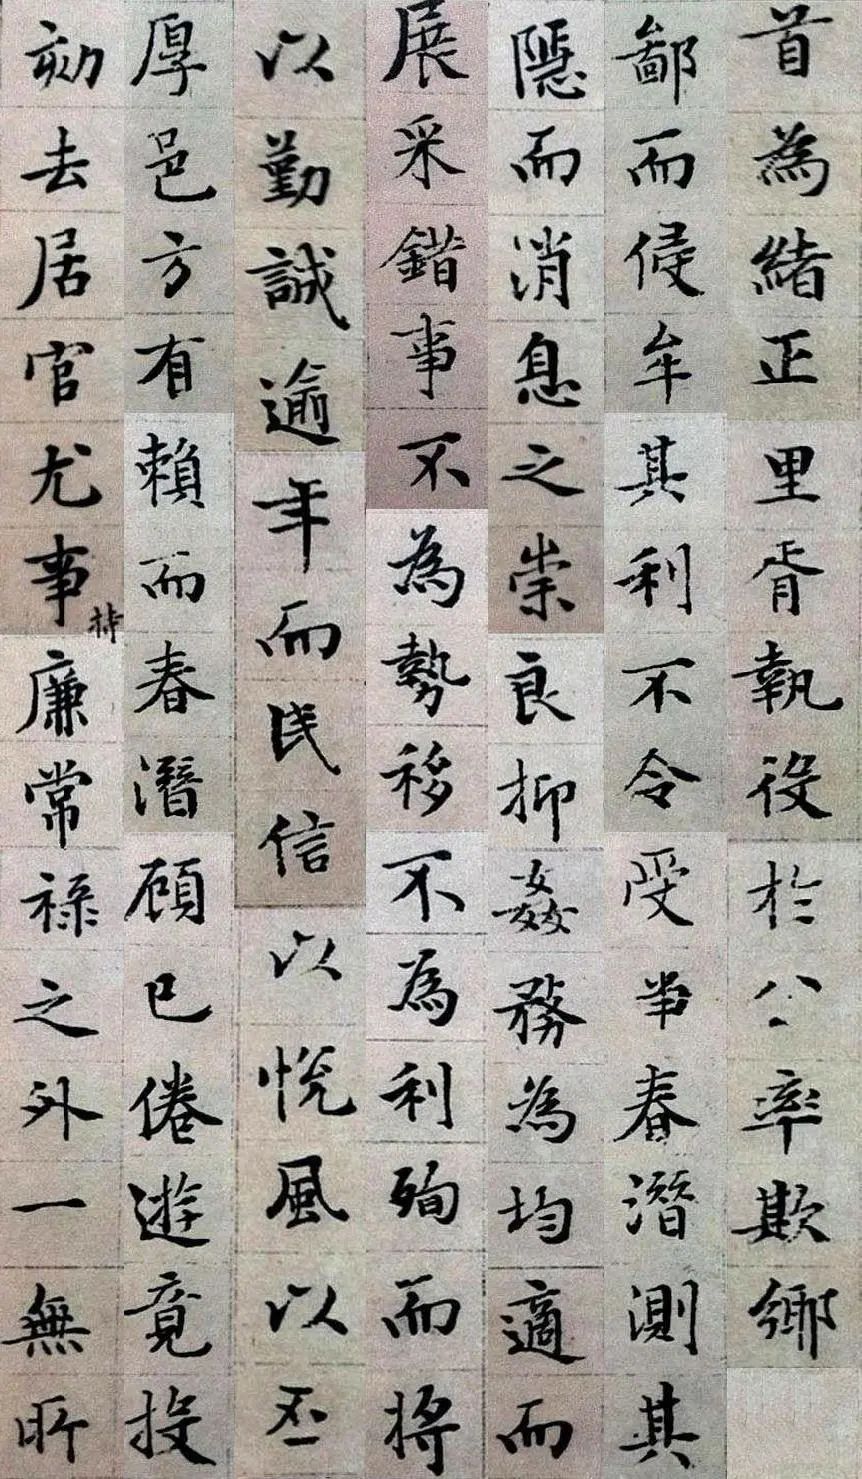 首為緒正里胥執役於公率欺鄉
鄙而侵牟其利不令受甹春潛測其
隱而消息之崇良抑姦務為均適而
展采錯事不為勢移不為利殉而將
以勤誠逾年而民信以悅風以丕
厚邑方有賴而春潛顧已倦遊竟投
劾去居官尤事持廉常祿之外一無所